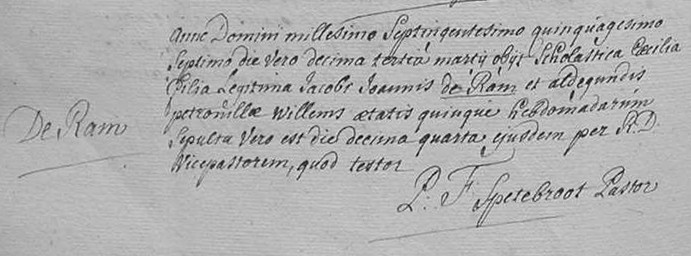 Anno Domini millesimo Septingentesimo quinquagesimo
Septimo die Vero decima tertia martij obijt Scholastica Cæcilia
filia Legitima Jacobi Joannis de Ram et aldegundis
De Ram
petronillæ Willems ætatis quinque hebdomadarum
Sepulta Vero est die decima quarta ejusdem per R: D:
Vicepastorem, quod testor
P: F: Spetebroot Pastor